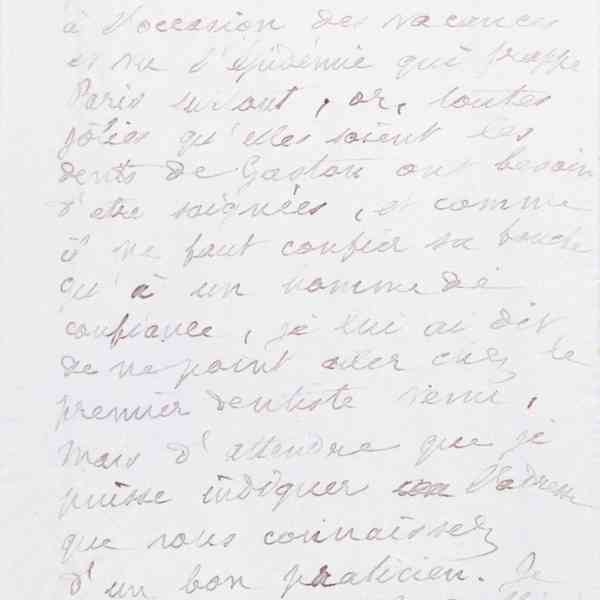 à l'occasion des vacances
et vu l'épidémie qui frappe
Paris surtout, or, toutes
jolies qu'elles soient les
dents de Gaston ont besoin
d'etre soignées, et comme
il ne faut confier sa bouche
qu'à un homme de
confiance, je lui ai dit
de ne point aller chez le
premier dentiste venu,
mais d'attendre que je
puisse indiquer l'adresse
que vous connaissez
d'un bon praticien. Je